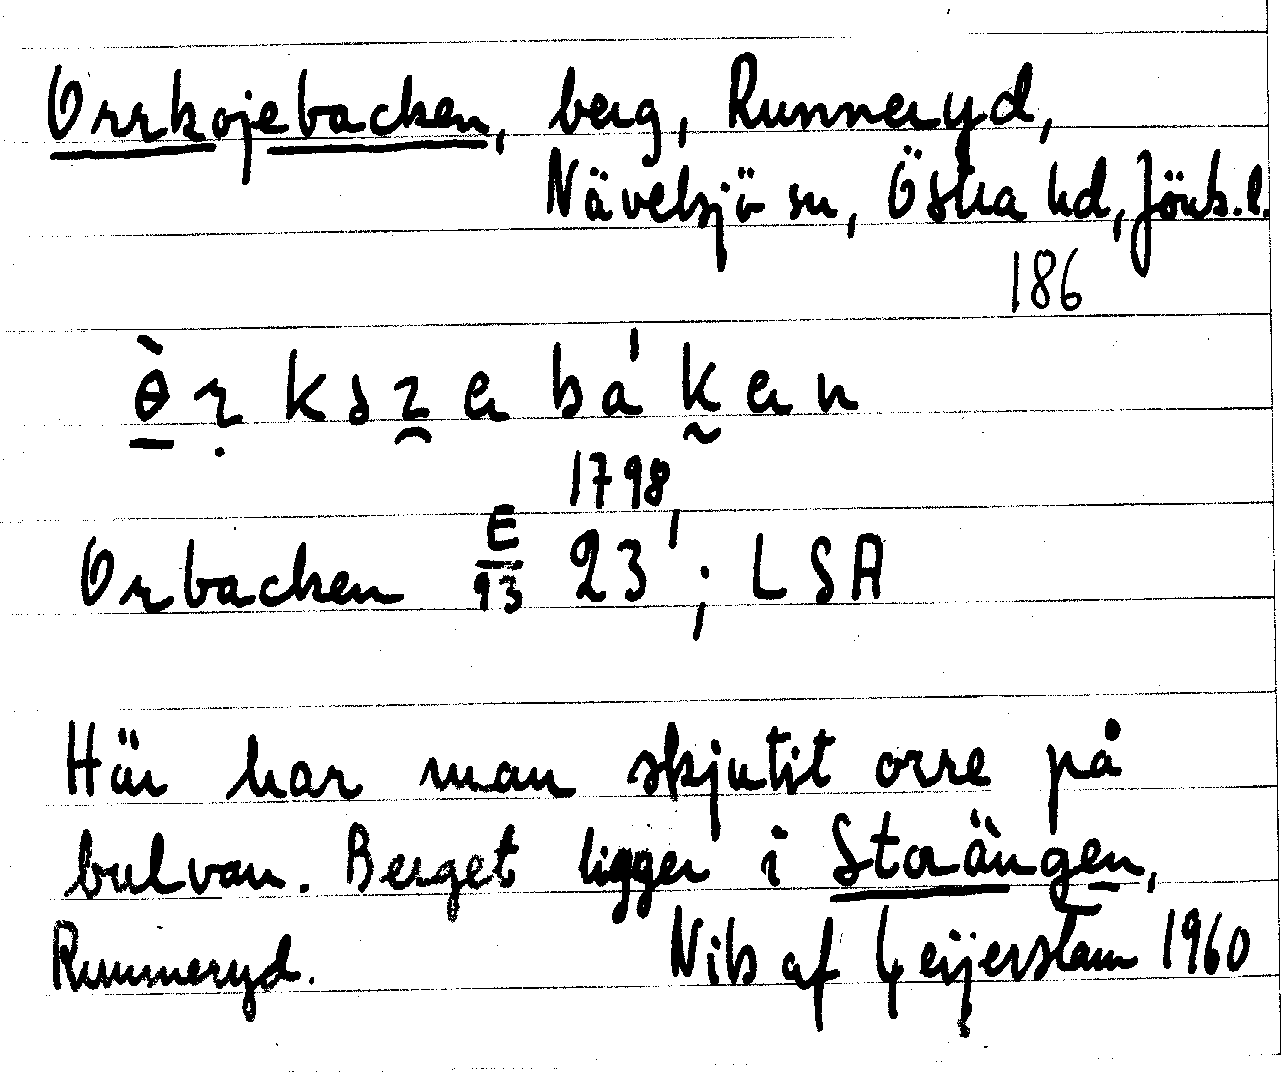 Orrkojebacken, berg, Runneryd,
Nävelsjö sn, Östra hd, Jönk. l.
186
1798
Orbacken E/93 23'; LSA
Här har man skjutit orre på
bulvan. Berget ligger i Storängen,
Runneryd. Nils af Geijerstam 1960